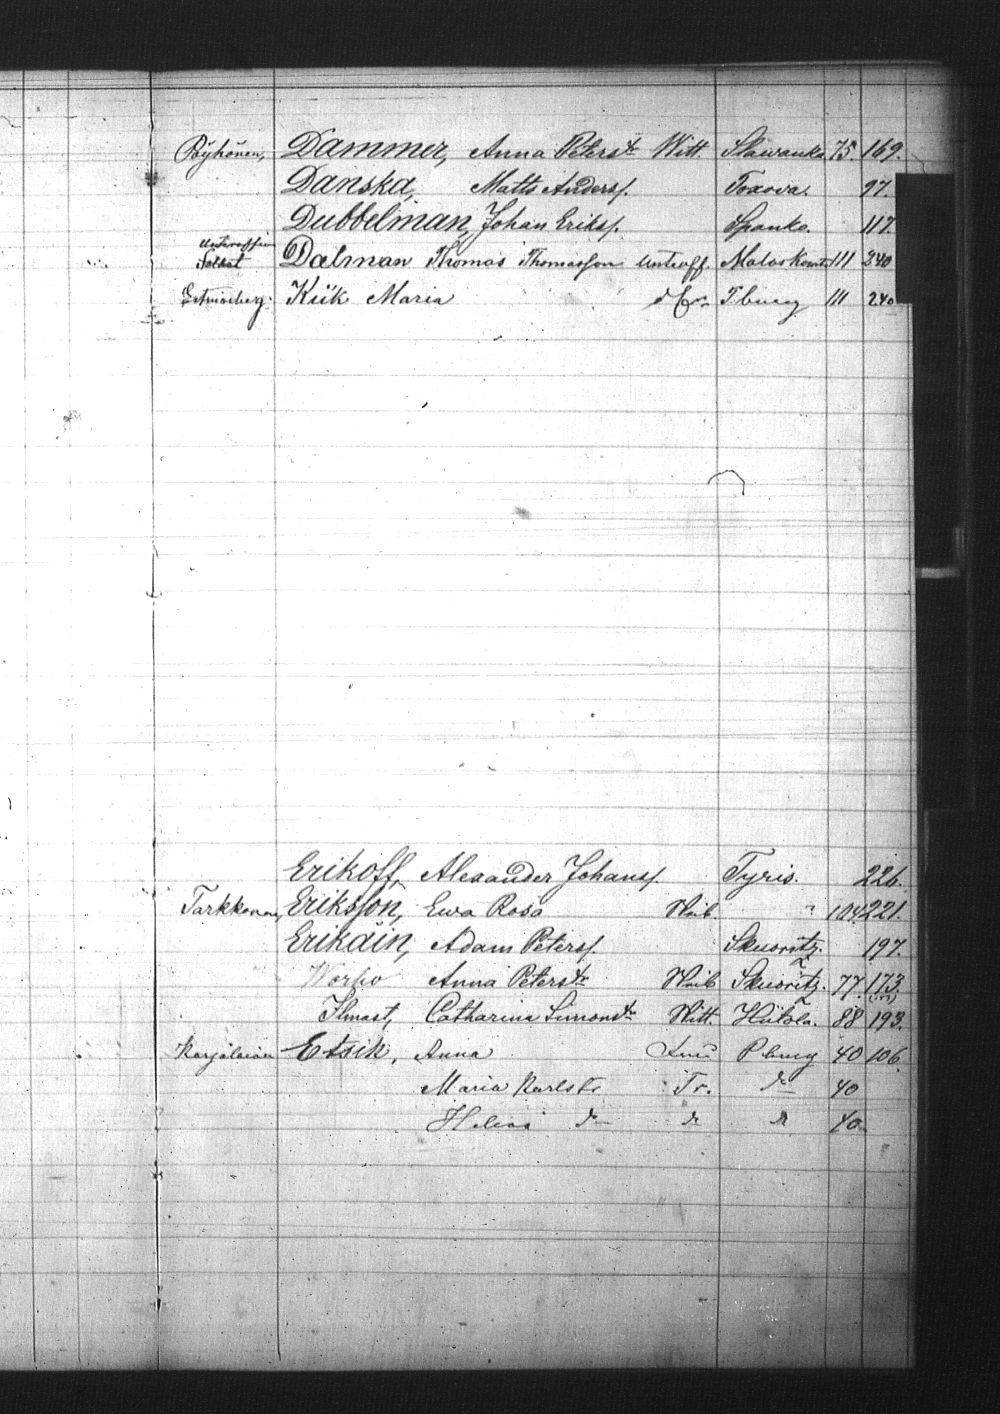 Pöyhönen, Dammer, Anna Petersdr Witt. Slawanka 75 169.
Danska, Matts Andersf. Toxova. 97.
Dubbelman, Johan Eriksf. Spanko. 117.
Underofficer
Soldat Dalman Thomas Thomasson Unteroff. 111 240
Kük Maria T burg 111 240
Erikoff, Alexander Johansf. Tyris. 226.
Tarkkonen, Eriksson, Ewa Rosa Wib. " 104. 221.
Erikäin, Adam Petersf. Skuoritz. 197.
Worho Anna Petersdr Wib Skuoritz. 77. 173.
Ilmast, Catharina Simonsdr Witt. Hatola. 88 193.
Karjalainen Etsik, Anna P burg 40 106.
Maria Karlsdr Tr. dr 40
Helena dr dr dr 40